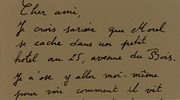 Cher ami,
Je crois savoir que Morel
se cache dans un petit
hôtel au 25, avenue du Bois.
Je n'ose y aller moi-même
pour voir comment il vit